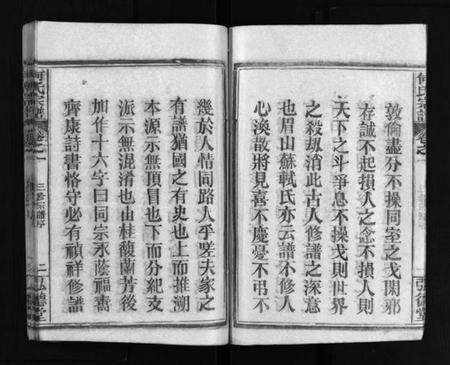 何氏宗譜
卷之一
敦倫盡分不操同室之戈閑邪
存誠不起損人之念不損人則
天下之斗爭息不操戈則世界
之殺劫消此古人修譜之深意
也眉山蘇軾氏亦云譜不修人
心渙散將見喜不慶憂不弔不
幾於人情同路人乎嗟夫家之
有譜猶國之有史也上而推溯
本源示無頂目也下而分紀支
派示無混淆也由桂馥蘭芳後
加作十六字曰同宗永蔭福壽
齊康詩書恪守必有禎祥修譜
何氏宗譜
卷之一
三修宗譜序
二